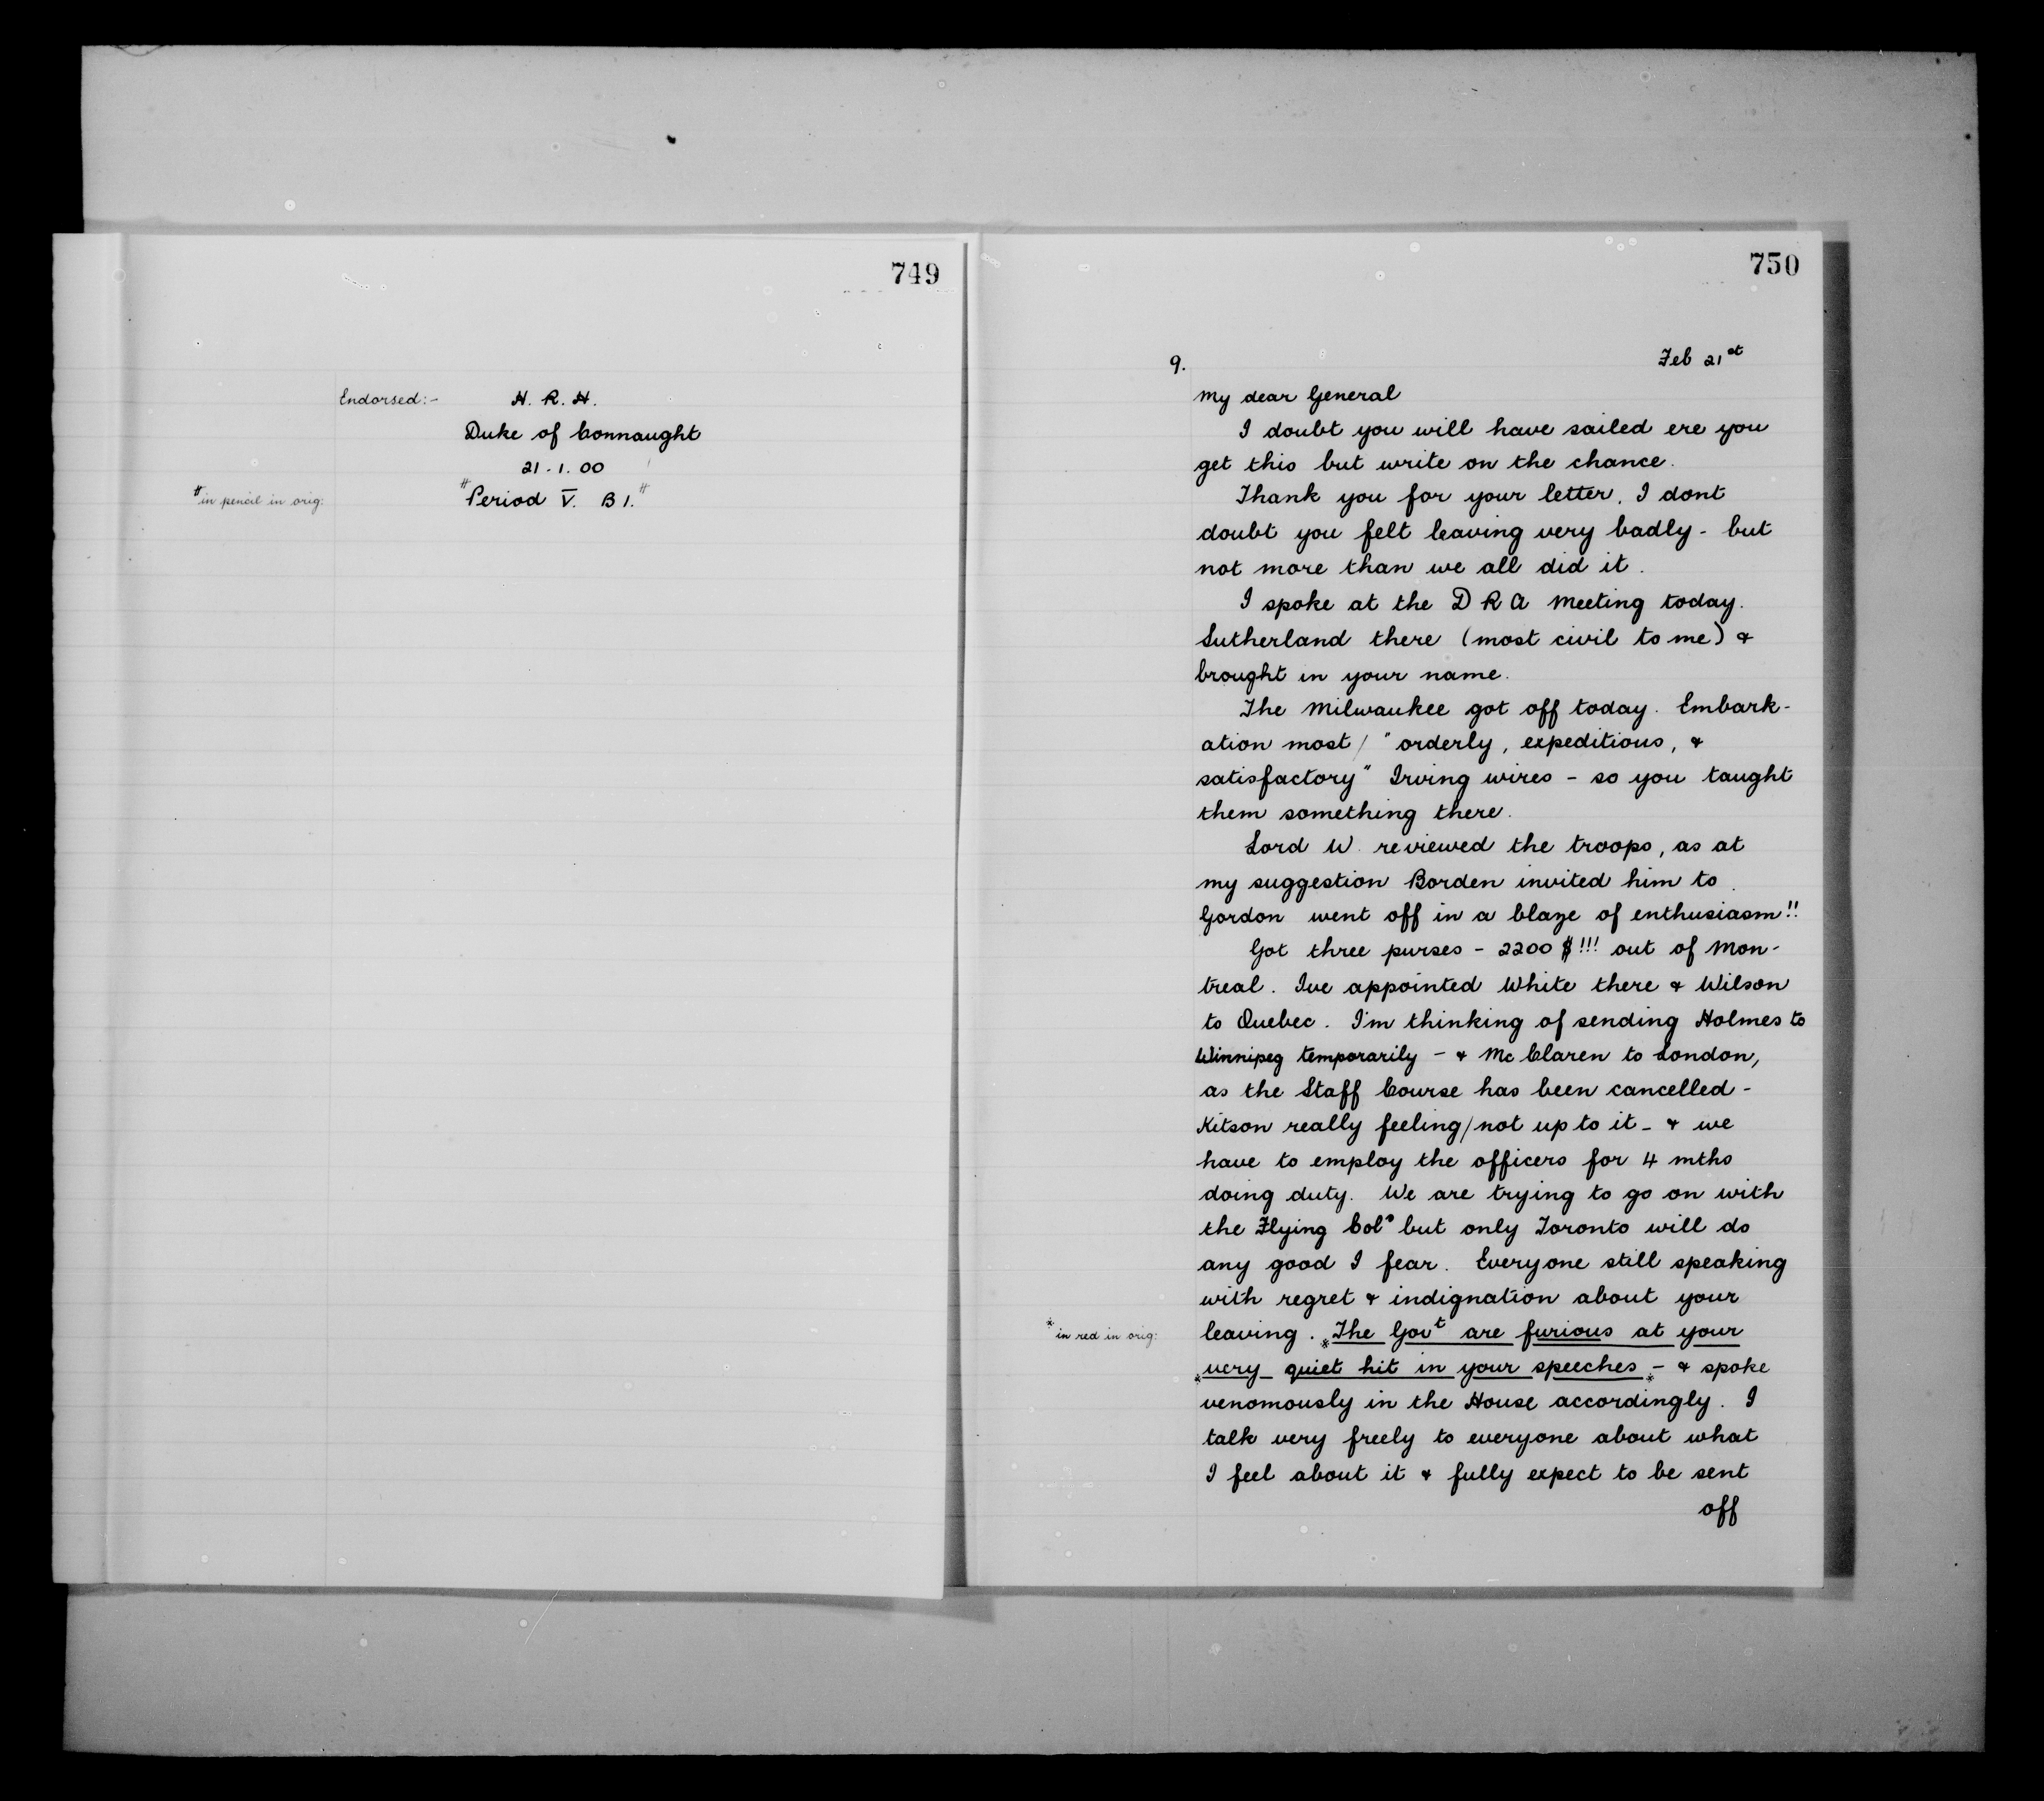 749
Endorsed:- H. R. H.
Duke of Connaught
21.1.00
# in pencil in orig:
# Period V. B 1. #
750
9.
Feb 21st
My dear General
I doubt you will have sailed ere you
get this but write on the chance.
Thank you for your letter, I dont
doubt you felt leaving very badly - but
not more than we all did it.
I spoke at the D R A Meeting today.
Sutherland there (most civil to me) &
brought in your name.
The Milwaukee got off today. Embark-
ation most / "orderly, expeditious, &
satisfactory" Irving wires - so you taught
them something there.
Lord W. reviewed the troops, as at
my suggestion Borden invited him to.
Gordon went off in a blaze of enthusiasm!!
Got three purses - 2200 $!!! out of Mon-
treal. Ive appointed White there & Wilson
to Quebec. I'm thinking of sending Holmes to
Winnipeg temporarily - & Mc Claren to London,
as the Staff Course has been cancelled -
Kitson really feeling / not up to it - & we
have to employ the officers for 4 mths
doing duty. We are trying to go on with
the Flying Cols but only Toronto will do
any good I fear. Everyone still speaking
with regret & indignation about your
* in red in orig:
leaving. * The Govt are furious at your
* very quiet hit in your speeches * - & spoke
venomously in the House accordingly. I
talk very freely to everyone about what
I feel about it & fully expect to be sent
off